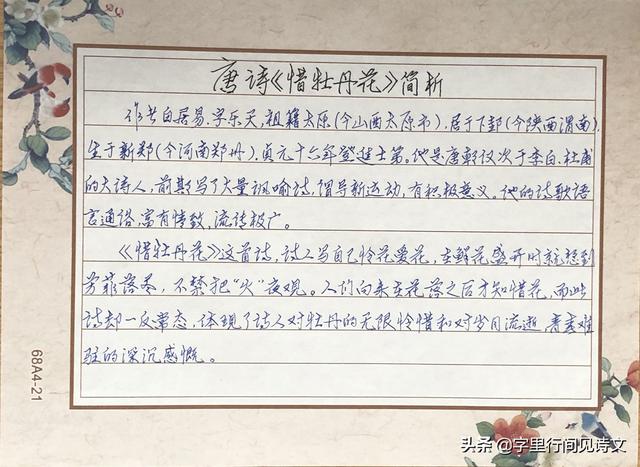 唐诗《惜牡丹花》简析
作者白居易,字乐天,祖籍太原(今山西太原市),居于下邽(今陕西渭南),
生于新郑(今河南郑州),贞元十六年登进士第。他是唐朝仅次于李白、杜甫
的大诗人,前期写了大量讽喻诗,倡导新运动,有积极意义。他的诗歌语
言通俗,富有情致,流传极广。
《惜牡丹花》这首诗,诗人写自己怜花爱花,在鲜花盛开时就想到
芳菲落尽,不禁把“火”夜观。人们向来在花落之后才知惜花,而此
诗却一反常态,体现了诗人对牡丹的无限怜惜和对岁月流逝,青春难
驻的深沉感慨。
68A4-21
头条@字里行间见诗文